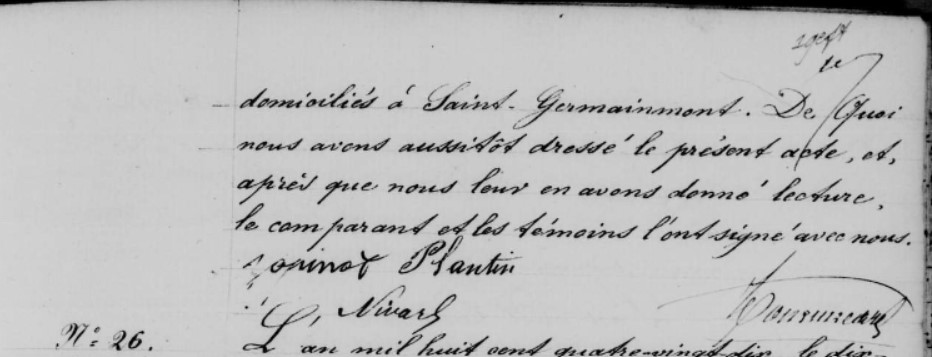 domiciliés à Saint-Germainmont. De Quoi
nous avons aussitôt dressé le présent acte, et,
après que nous leur en avons donné lecture,
le comparant et les témoins l'ont signé avec nous.
Plantin
Nivard
N° 26. L'an mil huit cent quatre-vingt-dix, le dix-